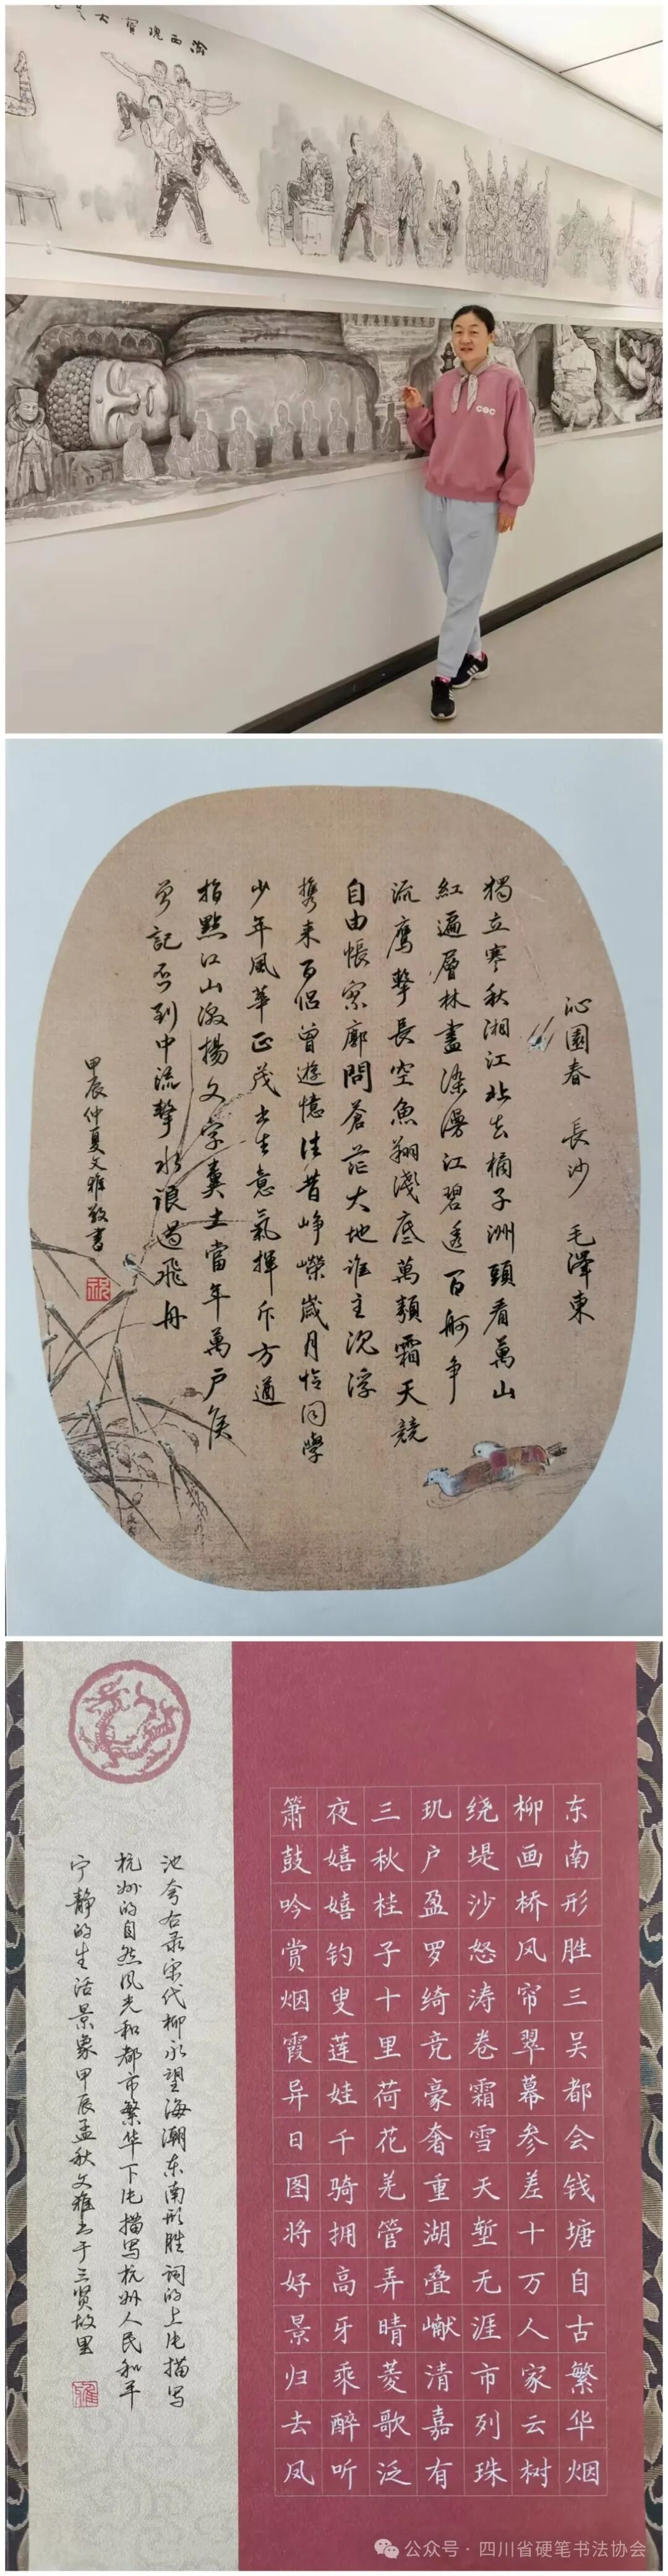 渝西瑰寶大
沁園春 長沙 毛澤東
獨立寒秋湘江北去橘子洲頭看萬山
紅遍層林盡染漫江碧透百舸争
流鹰擊長空魚翔淺底萬類霜天競
自由悵寥廓問蒼茫大地谁主沉浮
携来百侣曾遊憶往昔峥嶸歲月恰同學
少年風華正茂书生意氣揮斥方遒
指點江山激揚文字糞土當年萬户侯
曾記否到中流擊水浪遏飛舟
甲辰仲夏文雅敬書
东南形胜三吴都会钱塘自古繁华烟
柳画桥风帘翠幕参差十万人家云树
绕堤沙怒涛卷霜雪天堑无涯市列珠
玑户盈罗绮竞豪奢重湖叠巘清嘉有
三秋桂子十里荷花羌管弄晴菱歌泛
夜嬉嬉钓叟莲娃千骑拥高牙乘醉听
箫鼓吟赏烟霞异日图将好景归去凤
池夸右录宋代柳永望海潮东南形胜词的上片描写
杭州的自然风光和都市繁华下片描写杭州人民和平
宁静的生活景象甲辰孟秋文雅书于三贤故里
公众号·四川省硬笔书法协会